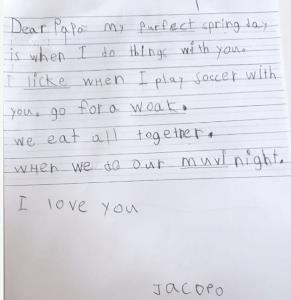 Dear Papa my purfect spring day
is when I do things with you.
I licke when I play soccer with
you. go for a woak.
we eat all together.
when we do our muvi night.
I love you
JACOPO